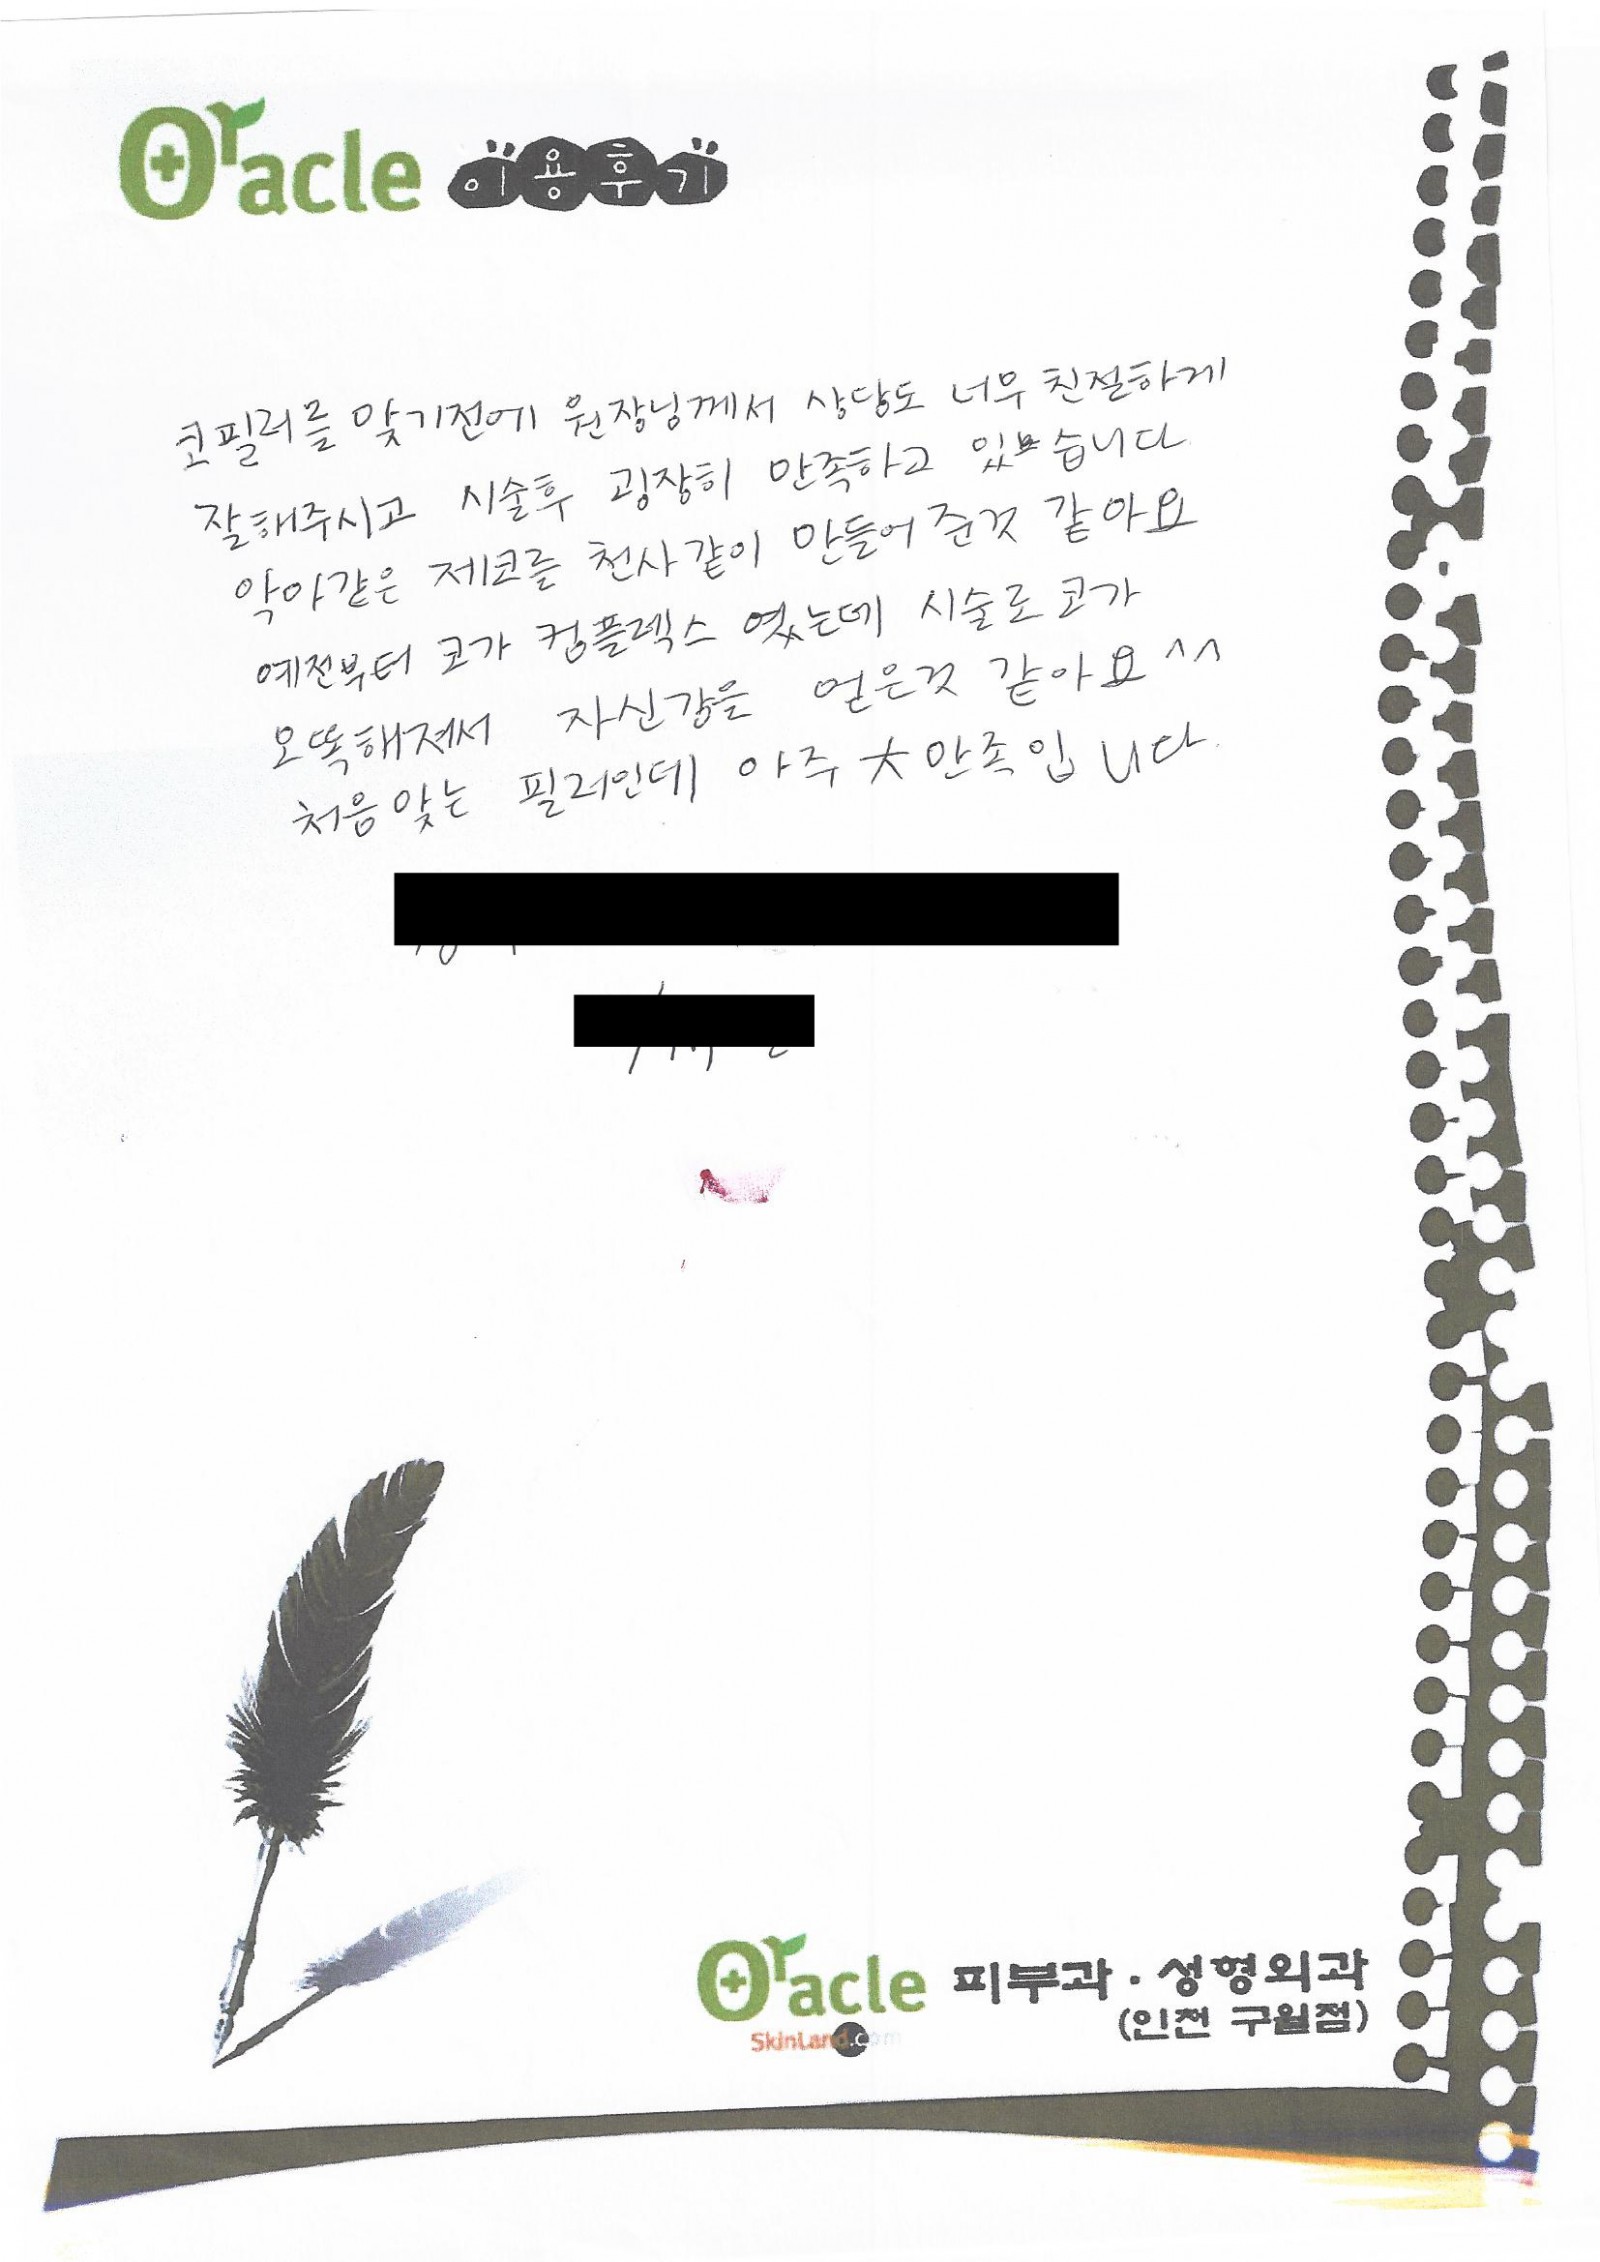 Oracle 이용후기
코필러를 맞기전에 원장님께서 상담도 너무 친절하게
잘해주시고 시술후 굉장히 만족하고 있습니다
악마같은 제코를 천사같이 만들어준것 같아요
예전부터 코가 컴플렉스 였는데 시술로 코가
오똑해져서 자신감을 얻은것 같아요^^
처음맞는 필러인데 아주 大만족입니다.
Oracle 피부과 · 성형외과
SkinLand.com (인천 구월점)